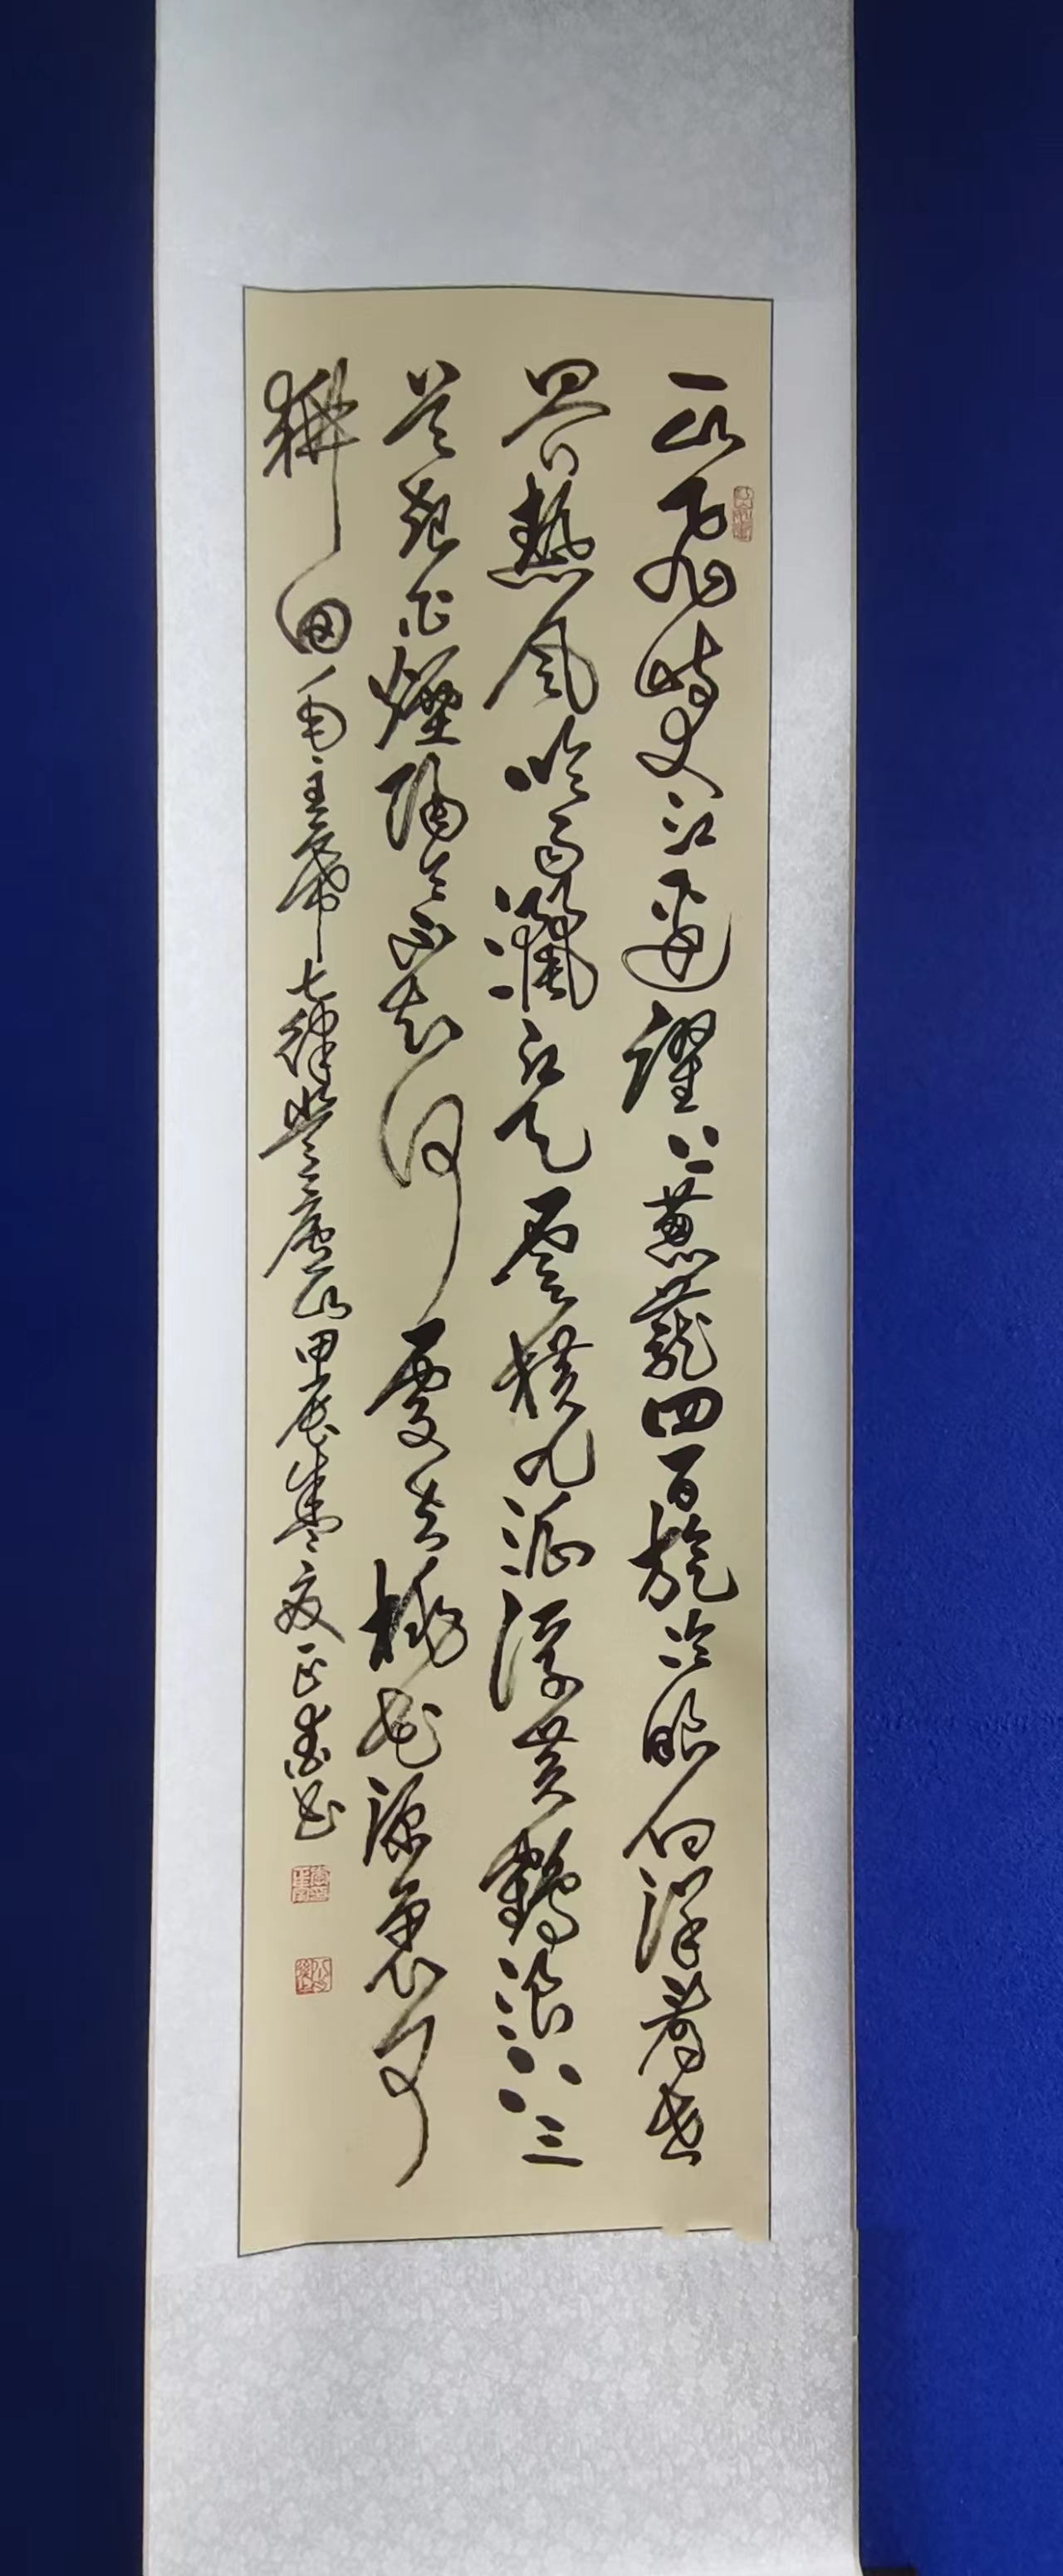 一山飛峙大江邊躍上蔥蘢四百旋冷眼向洋看世
界熱風吹雨灑江天雲橫九派浮黃鶴浪下三
吳起白煙陶令不知何處去桃花源裏可
耕田毛主席七律登廬山甲辰